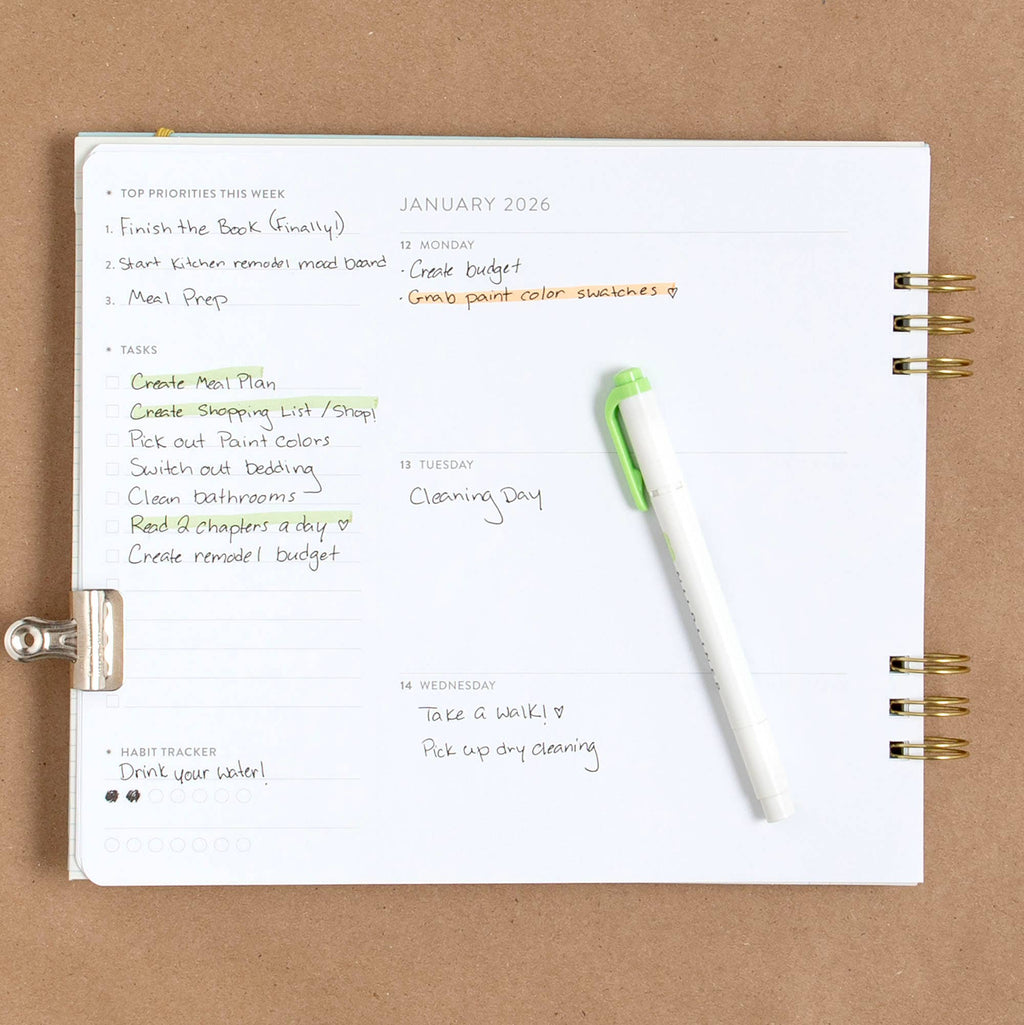 TOP PRIORITIES THIS WEEK
1. Finish the Book (Finally!)
2. Start Kitchen remodel mood board
3. Meal Prep
TASKS
Create Meal Plan
Create Shopping List / Shop!
Pick out Paint colors
Switch out bedding
Clean bathrooms
Read 2 chapters a day ♡
Create remodel budget
HABIT TRACKER
Drink your water!
JANUARY 2026
12 MONDAY
· Create budget
· Grab paint color swatches ♡
13 TUESDAY
Cleaning Day
14 WEDNESDAY
Take a walk! ♡
Pick up dry cleaning